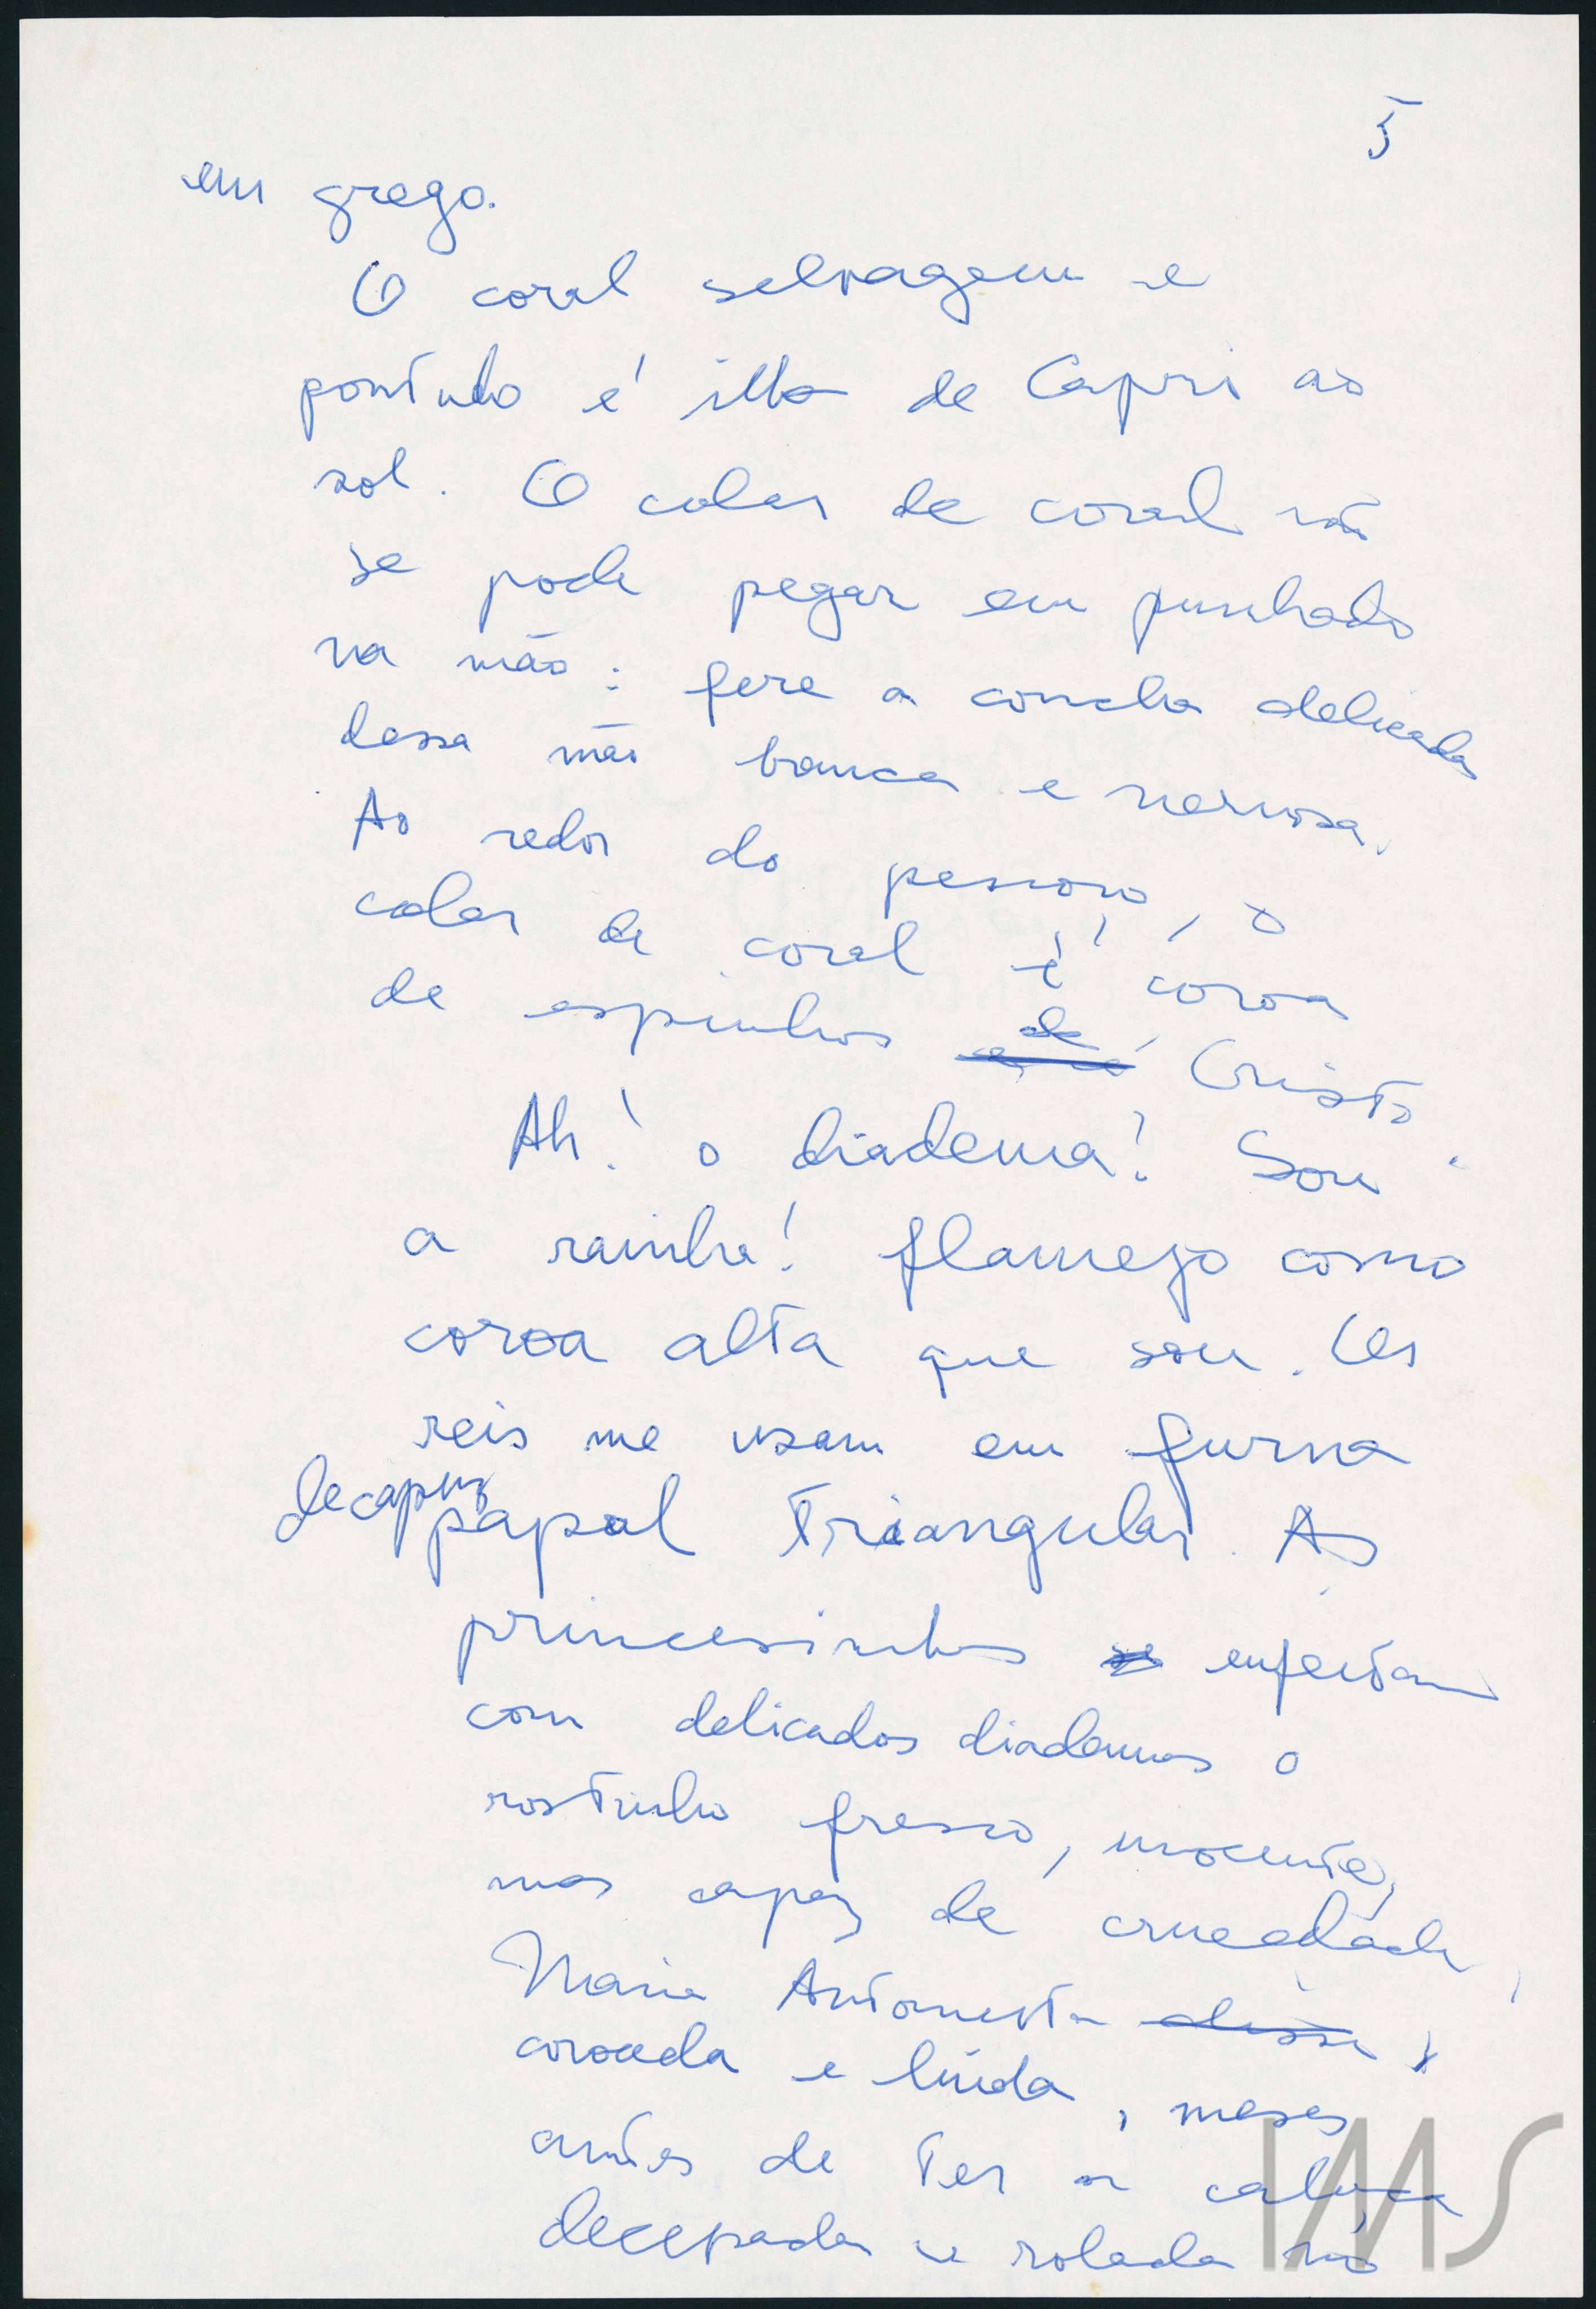 5
em grego.
O coral selvagem e
pontudo é ilha de Capri ao
sol. O colar de coral não
se pode pegar em punhado
na mão: fere a concha delicada
dessa mão branca e nervosa.
Ao redor do pescoço, o
colar de coral é coroa
de espinhos de Cristo.
Ah! o diadema! Sou
a rainha! flamejo como
coroa alta que sou. Os
reis me usam em furna
de capuz papal triangular. As
princesinhas se enfeitam
com delicados diademas o
rostinho fresco, inocente,
mas capaz de crueldade,
Maria Antonieta disse,
coroada e linda, meses
antes de ter a cabeça
decepada e rolada no
IMS